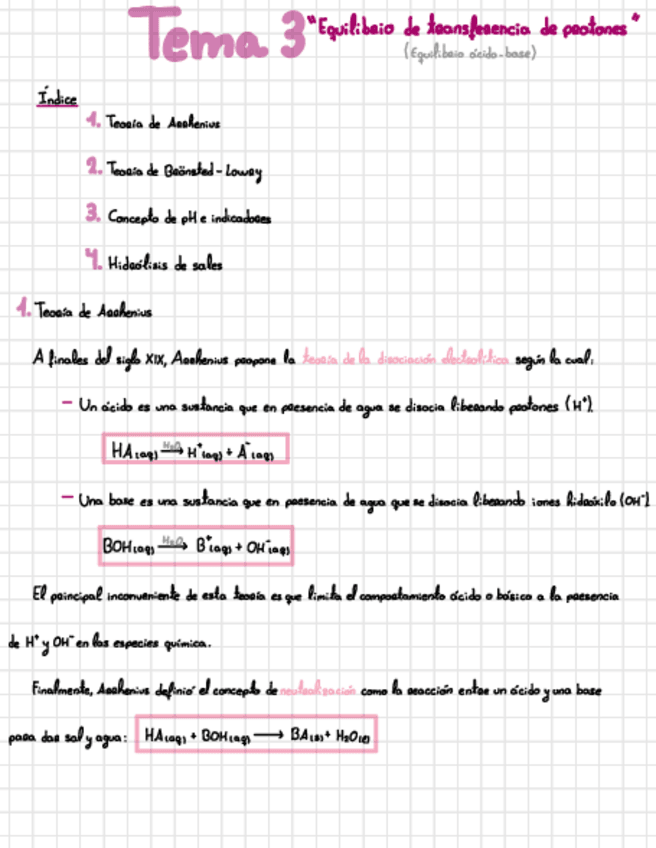 Tema 3 "Equilibrio de transferencia de protones"
(Equilibrio ácido-base)
Índice
1. Teoría de Arrhenius
2. Teoría de Brönsted-Lowry
3. Concepto de pH e indicadores
4. Hidrólisis de sales
1. Teoría de Arrhenius
A finales del siglo XIX, Arrhenius propone la teoría de la disociación electrolítica según la cual:
- Un ácido es una sustancia que en presencia de agua se disocia liberando protones (H⁺).
HA(aq) —H₂O→ H⁺(aq) + A⁻(aq)
- Una base es una sustancia que en presencia de agua que se disocia liberando iones hidróxilo (OH⁻)
BOH(aq) —H₂O→ B⁺(aq) + OH⁻(aq)
El principal inconveniente de esta teoría es que limita el comportamiento ácido o básico a la presencia
de H⁺ y OH⁻ en las especies química.
Finalmente, Arrhenius definió el concepto de neutralización como la reacción entre un ácido y una base
para dar sal y agua: HA(aq) + BOH(aq) ⟶ BA(s) + H₂O(l)